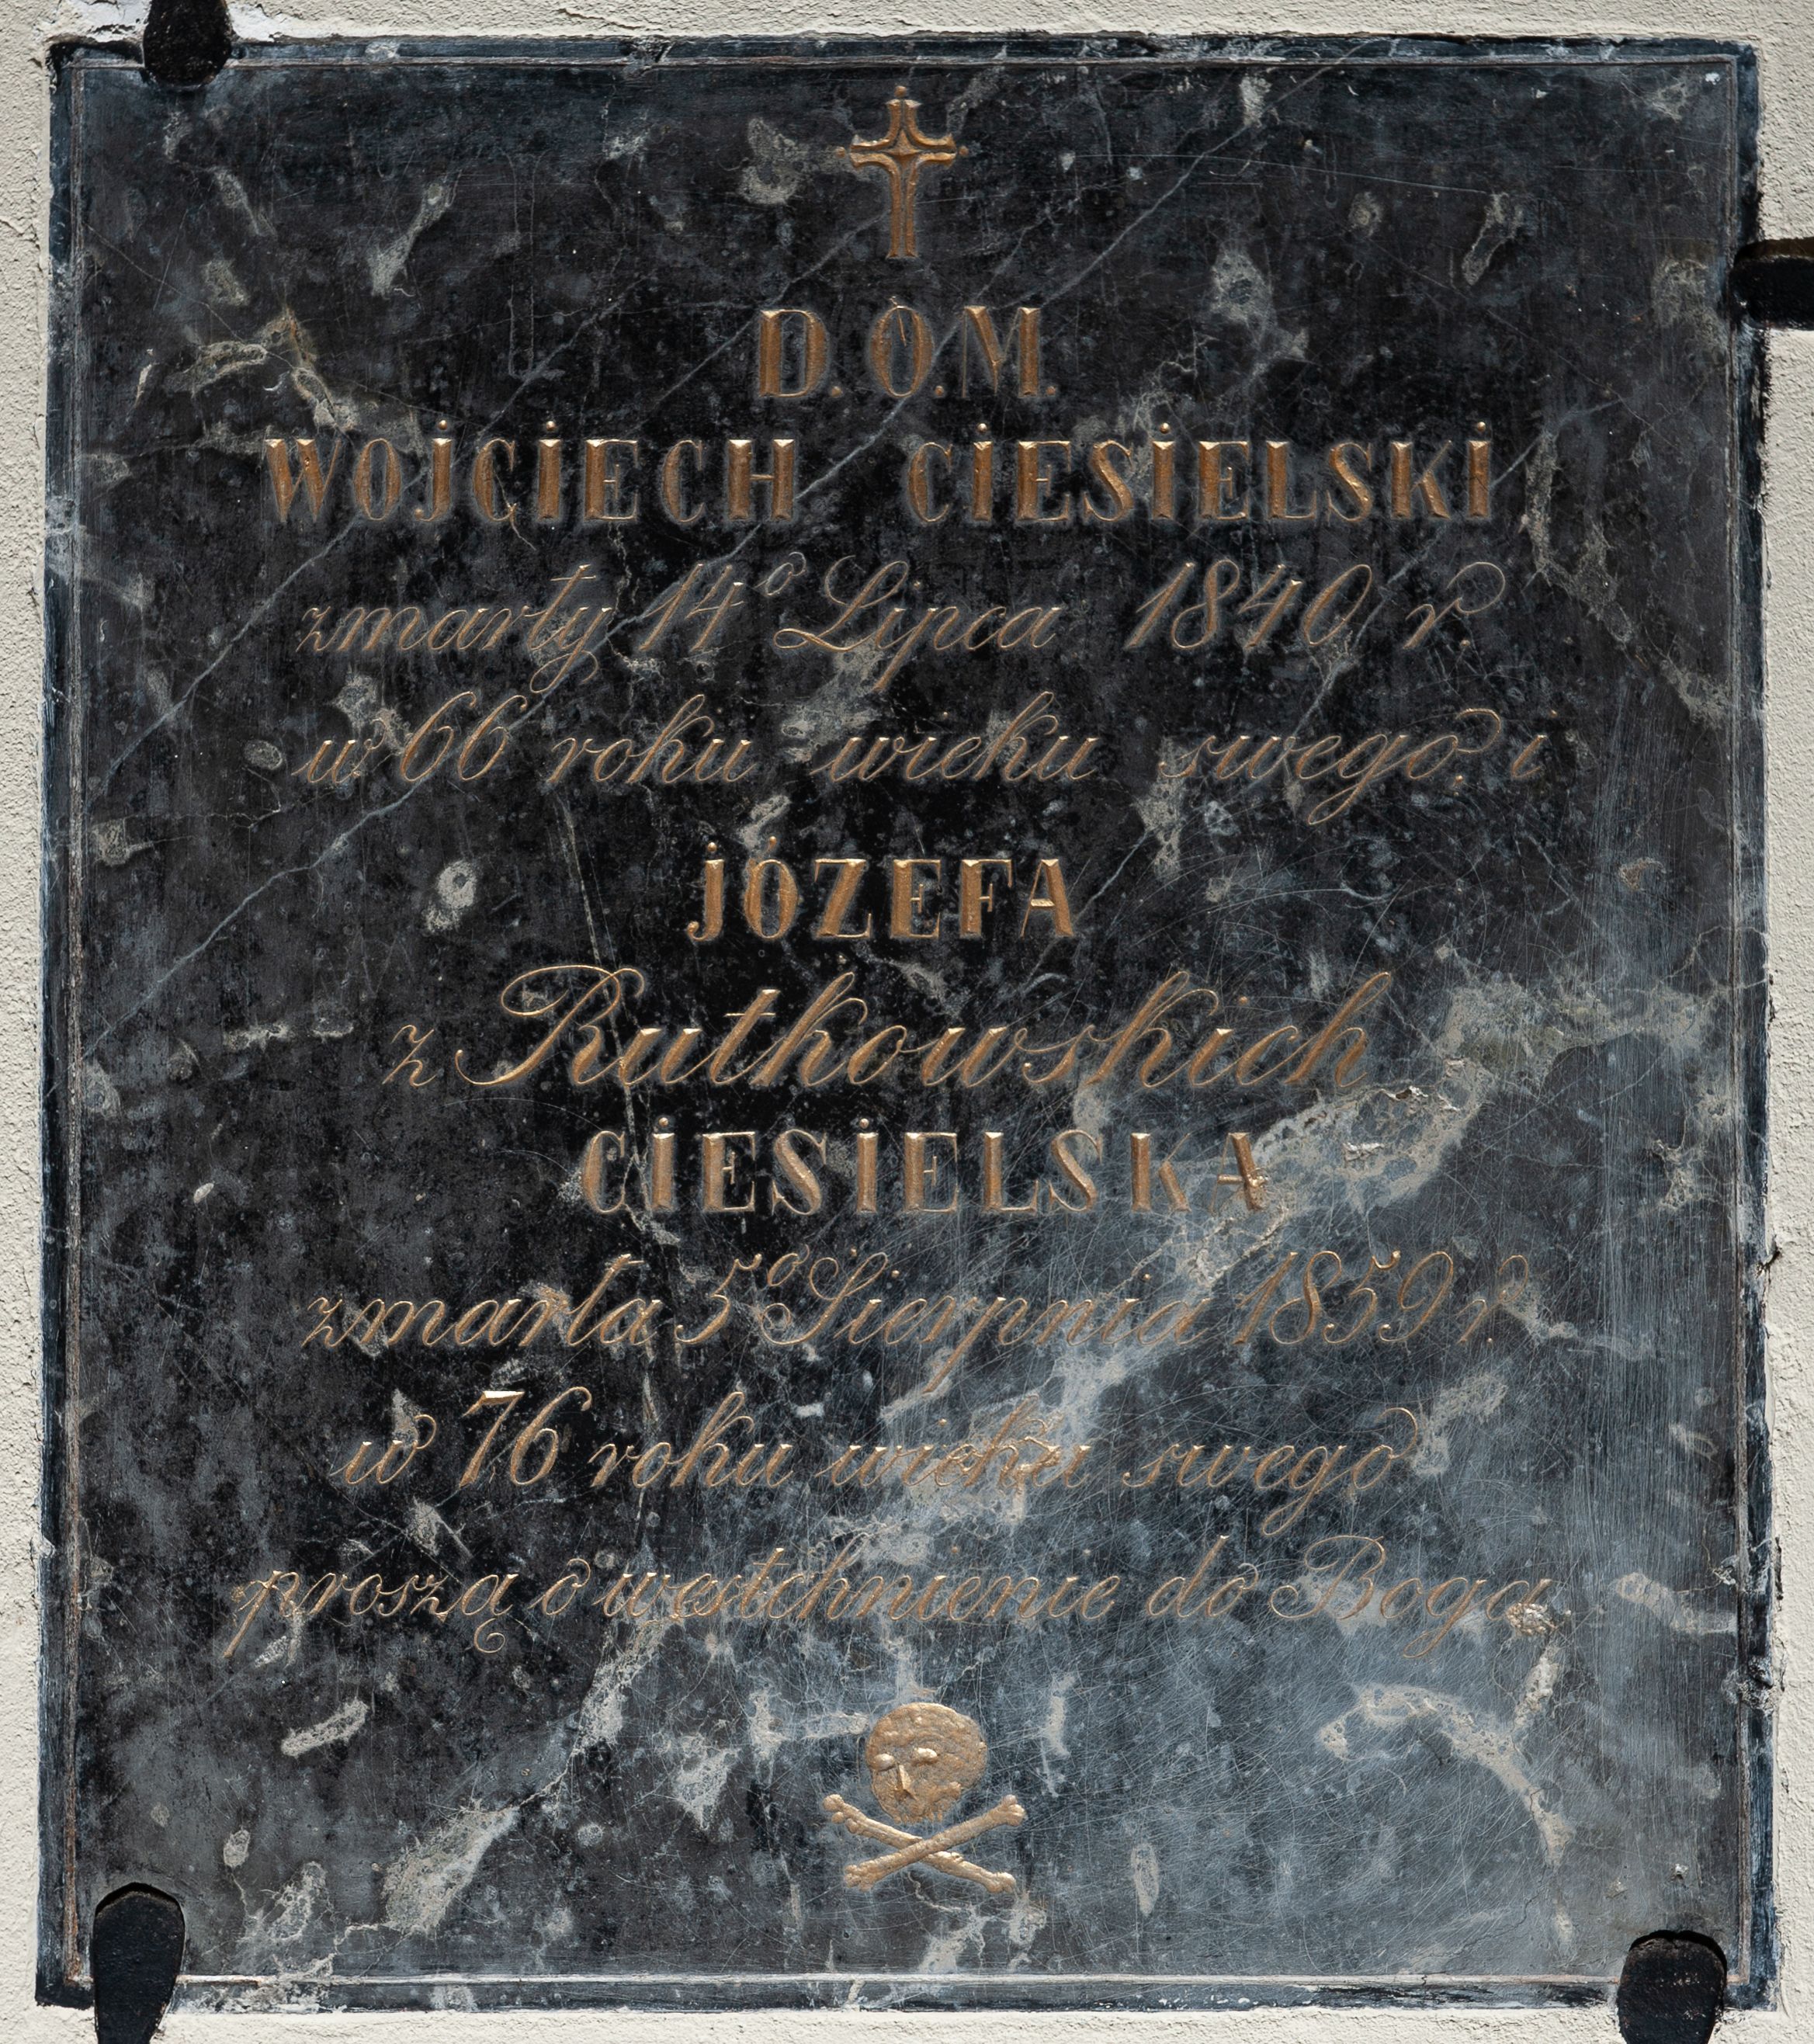 D.O.M.
WOJCIECH CIESIELSKI
zmarły 14º Lipca 1840 r.
w 66 roku wieku swego. i
JÓZEFA
z Rutkowskich
CIESIELSKA
zmarła 5º Sierpnia 1859 r.
w 76 roku wieku swego
proszą o westchnienie do Boga.